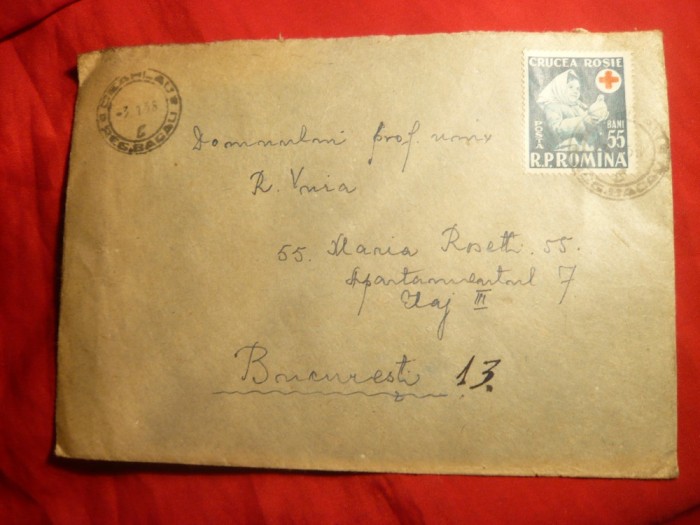 CEAHLAU
REG. BACAU
CRUCEA ROSIE
POSTA
BANI
55
R.P.ROMÎNA
REG. BACAU
Domnului prof. univ
R. Vuia
55. Maria Rosetti. 55.
Apartamentul 7
Etaj III
Bucureşti 13.